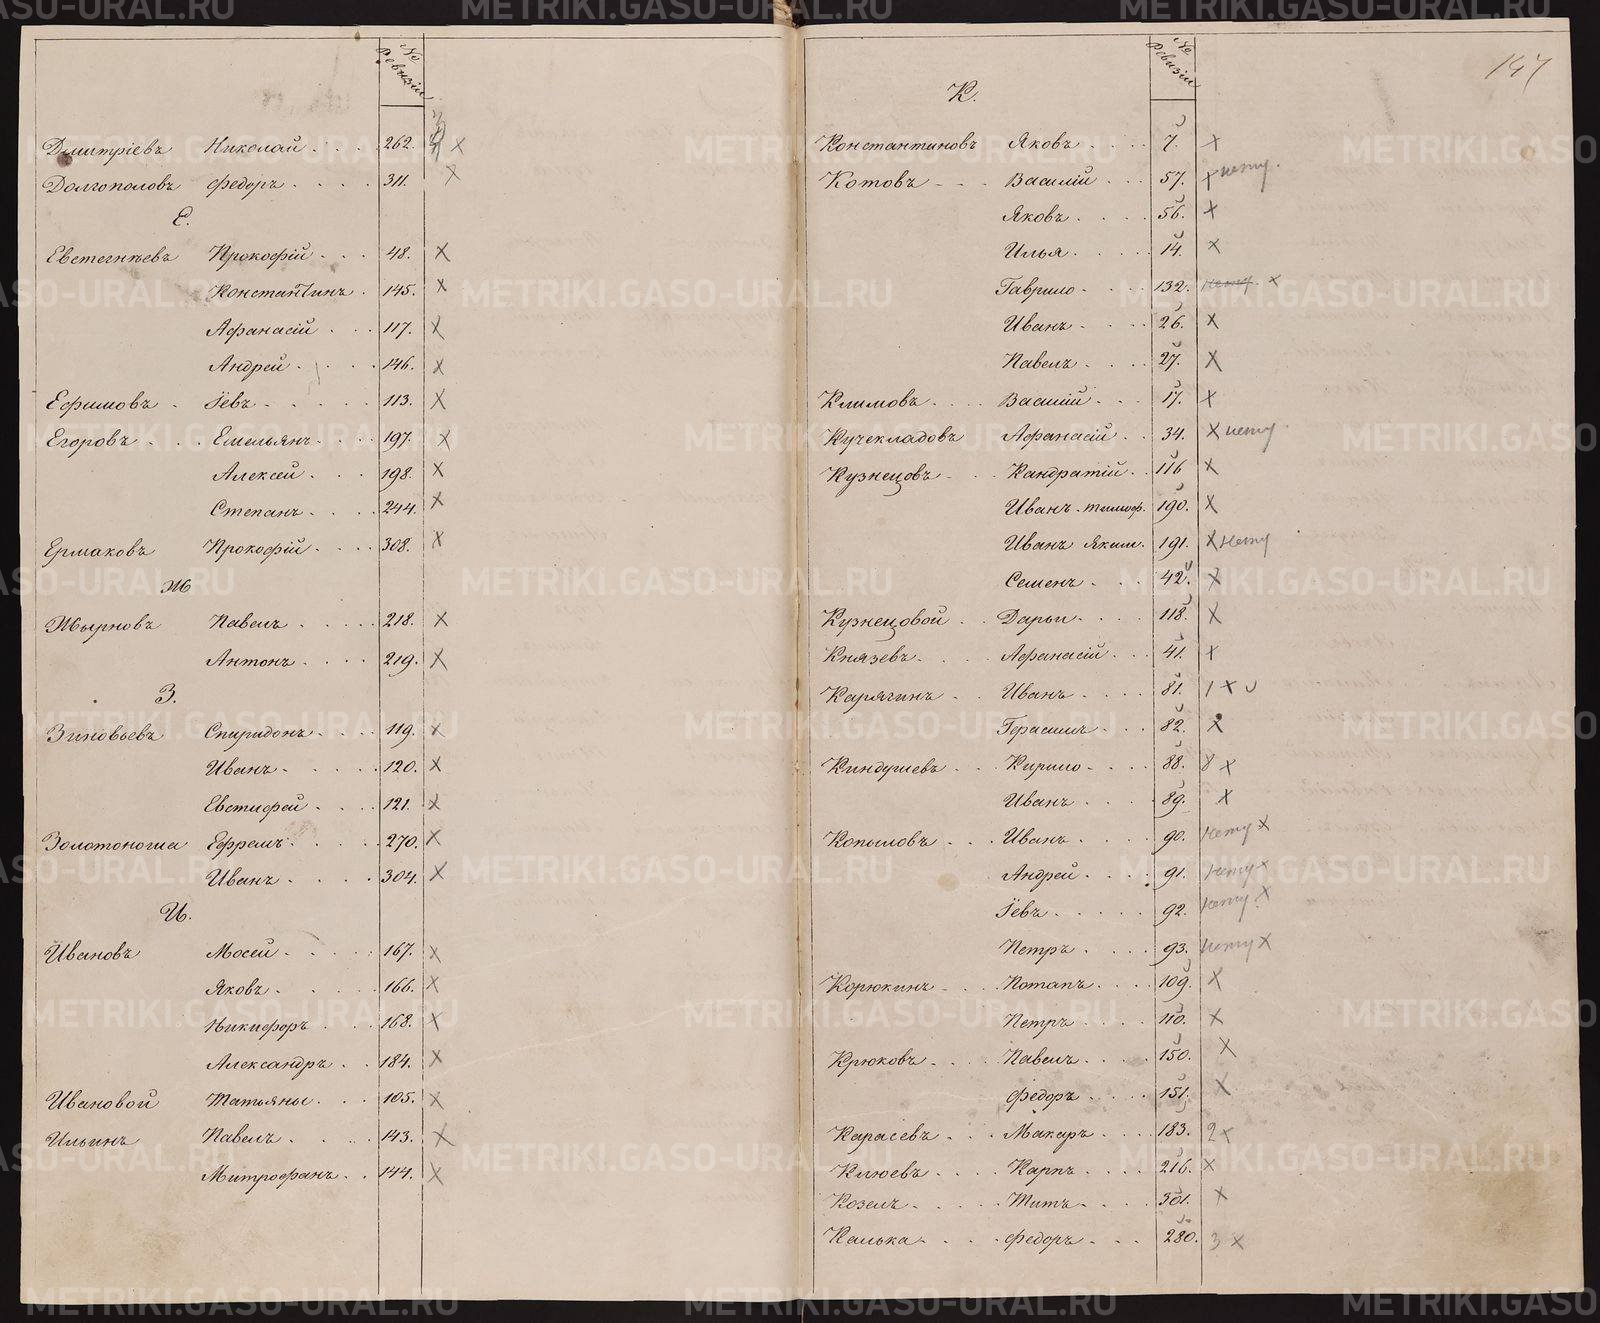 № ревизiи
Дмитрiевъ Николай 262. ×
Долгополовъ Федоръ 311. ×
Е.
Евстегнѣевъ Прокофiй 48. ×
Константинъ 145. ×
Афанасiй 117. ×
Андрей 146. ×
Ефимовъ Iевъ 113. ×
Егоровъ Емельянъ 197. ×
Алексей 198. ×
Степанъ 244. ×
Ермаковъ Прокофiй 308. ×
Ж
Жырновъ Павелъ 218. ×
Антонъ 219. ×
З.
Зиновьевъ Спиридонъ 119. ×
Иванъ 120. ×
Евстифей 121. ×
Золотоноша Ефремъ 270. ×
Иванъ 304. ×
И.
Ивановъ Мосей 167. ×
Яковъ 166. ×
Никифоръ 168. ×
Александръ 184. ×
Ивановой Татьяны 105. ×
Ильинъ Павелъ 143. ×
Митрофанъ 144. ×
147
№ ревизiи
К.
Константиновъ Яковъ 7. ×
Котовъ Василiй 57. × нету.
Яковъ 56. ×
Илья 14. ×
Гаврило 132. нету. ×
Иванъ 26. ×
Павелъ 27. ×
Климовъ Василiй 17. ×
Кучекладовъ Афанасiй 34. × нету.
Кузнецовъ Кандратiй 116 ×
Иванъ тимоф. 190. ×
Иванъ Яким. 191. × нету
Семенъ 42. ×
Кузнецовой Дарьи 118. ×
Князевъ Афанасiй 41. ×
Карягинъ Иванъ 81. 1 ×
Герасимъ 82. ×
Киндушевъ Кирило 88. 8 ×
Иванъ 89. ×
Копыловъ Иванъ 90. нету ×
Андрей 91. нету ×
Iевъ 92. нету ×
Петръ 93. нету ×
Корюкинъ Потапъ 109. ×
Петръ 110. ×
Крюковъ Павелъ 150. ×
Федоръ 151. ×
Карасевъ Макаръ 183. 2 ×
Клюевъ Карпъ 216. ×
Козелъ Титъ 301. ×
Калька Федоръ 280. 3 ×
METRIKI.GASO-URAL.RU